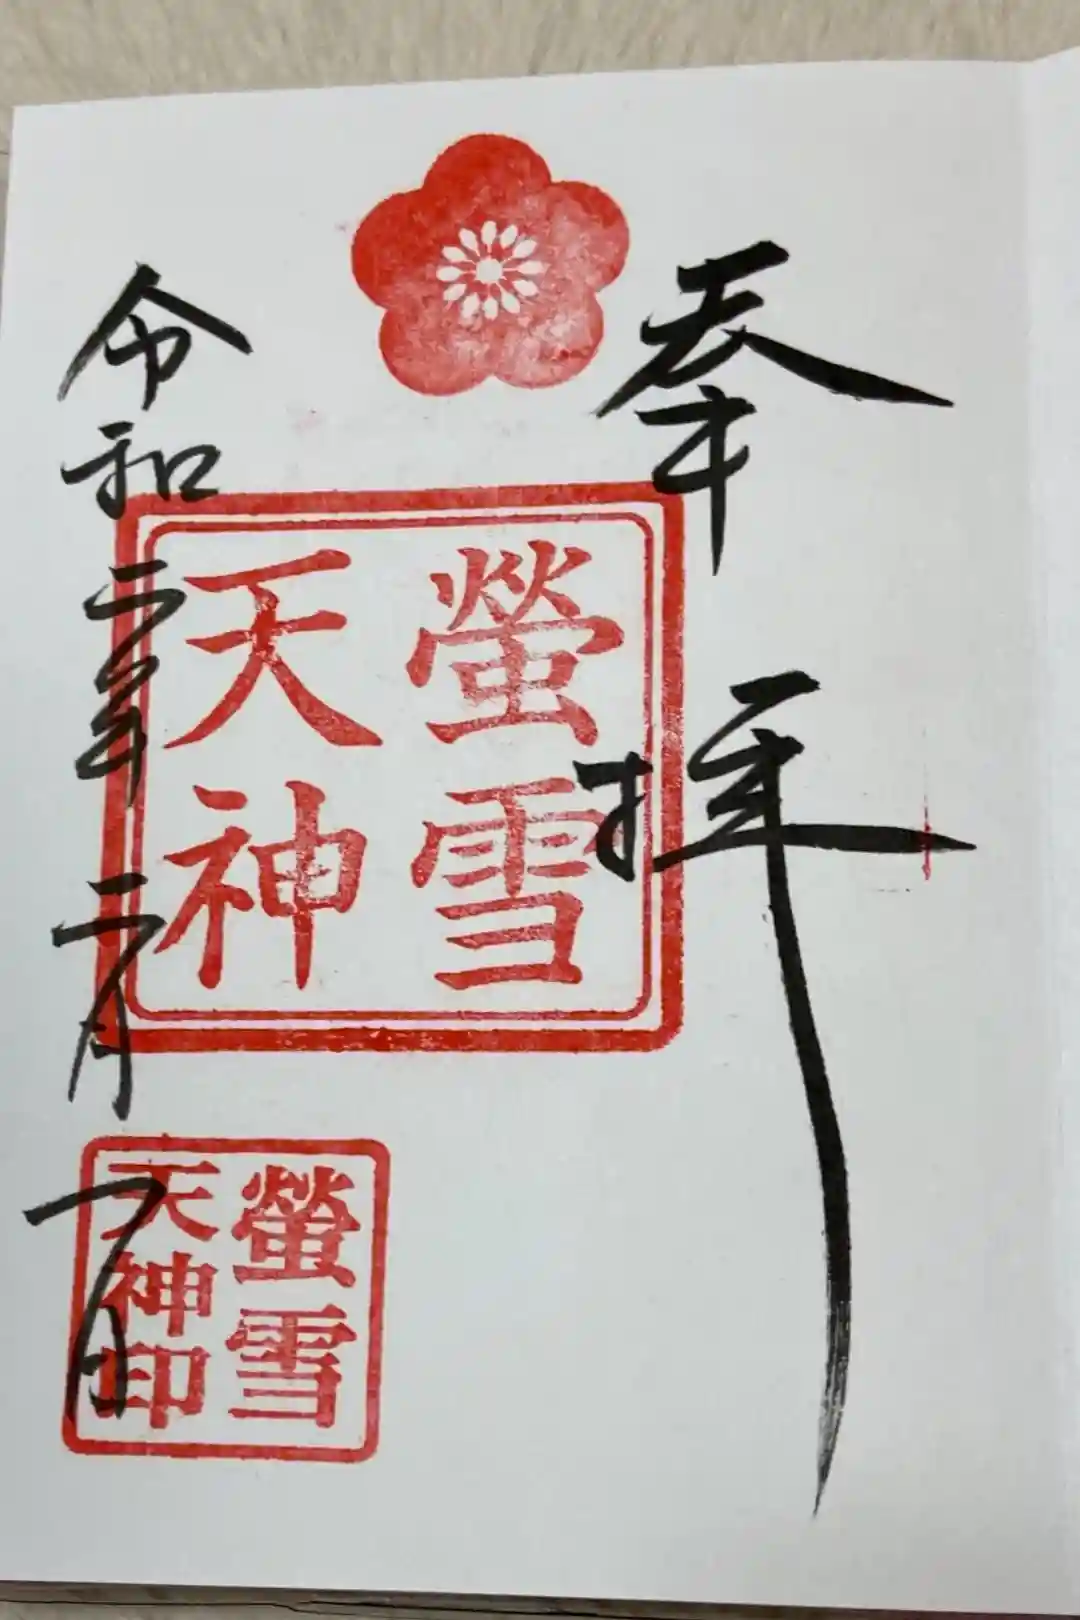 奉拝
螢雪
天神
令和二年二月 日
螢雪
天神印